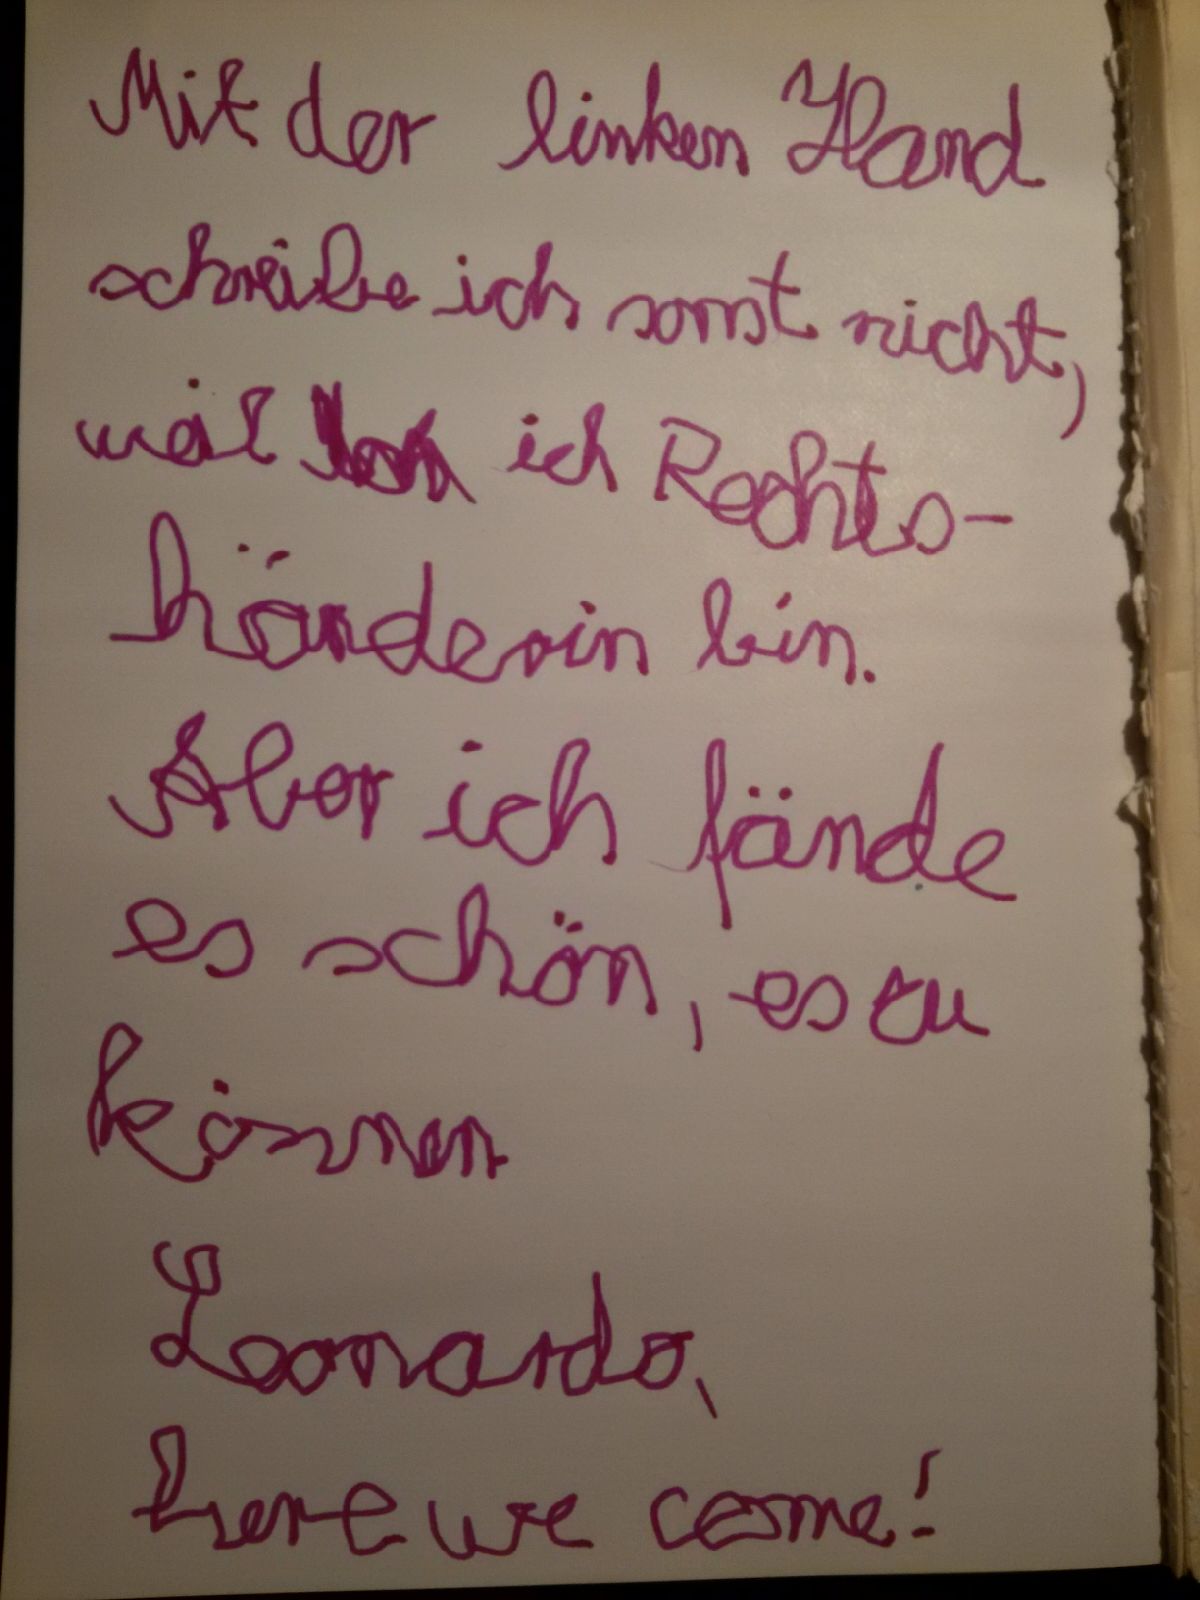 Mit der linken Hand
schreibe ich sonst nicht,
weil ich Rechts-
händerin bin.
Aber ich fände
es schön, es zu
können
Leonardo,
here we come!